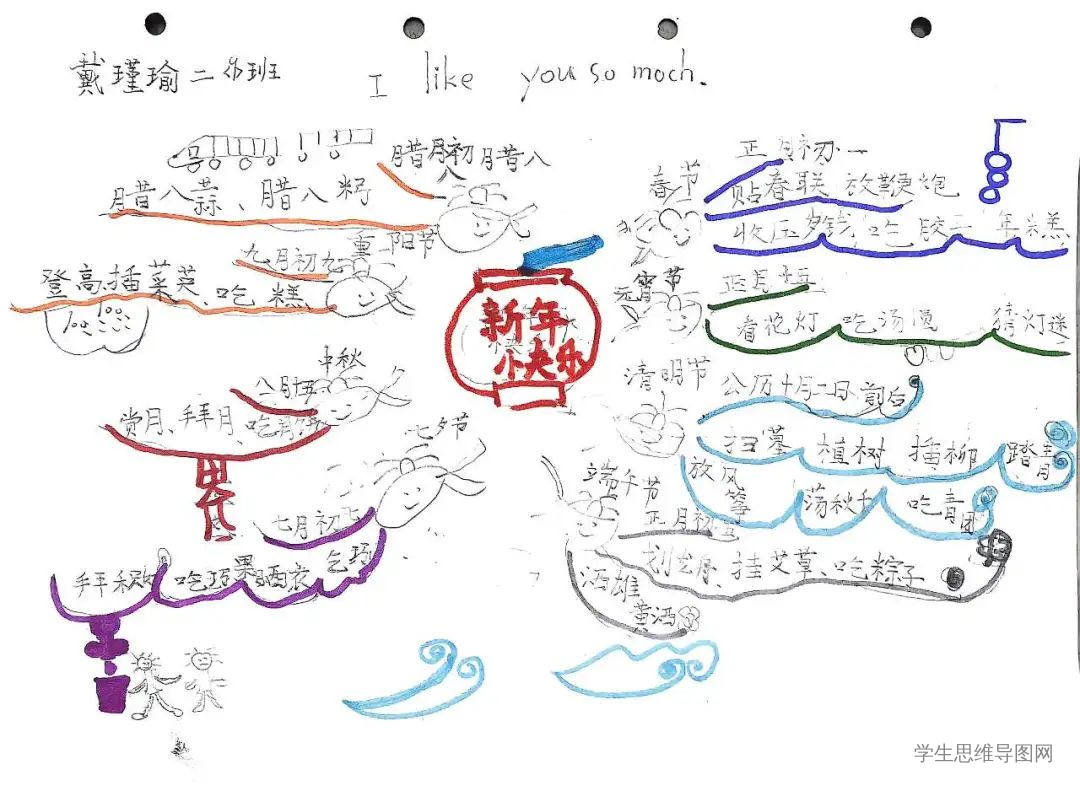 戴瑾瑜二
I like you so moch.
腊月初八
腊八
腊八蒜、腊八粥
重阳节
九月初九
登高、插茱萸、吃糕
中秋
八月十五
赏月、拜月、吃月饼
七夕节
七月初七
吃巧果晒衣
乞巧
新年
快乐
春节
正月初一
贴春联 放鞭炮
收压岁钱 吃 年糕
元宵节
正月十五
看花灯 吃汤圆 猜灯迷
清明节
公历十月二日前后
扫墓 植树 插柳 踏青
放风筝 荡秋千 吃青团
端午节
正月初五
划龙舟、挂艾草、吃粽子
洒雄
黄酒
学生思维导图网